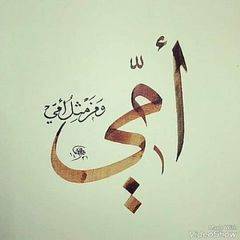 أمّي
ومن مثل أمّي
Made With
VideoShow